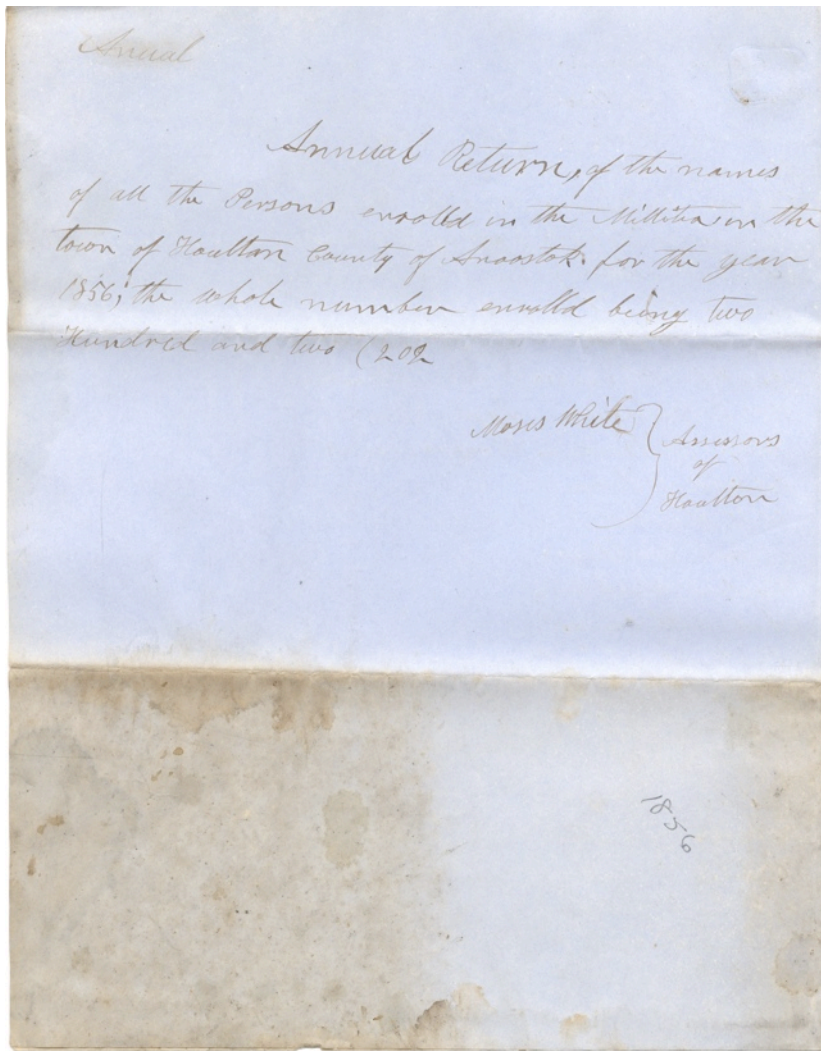 Anual
Annual Return, of the names
of all the Persons enrolld in the Millitia in the
town of Houlton County of Aroostok. for the year
1856, the whole number enrolld being two
Hundred and two (202
Moses White } Assessors
of
Houlton
1856